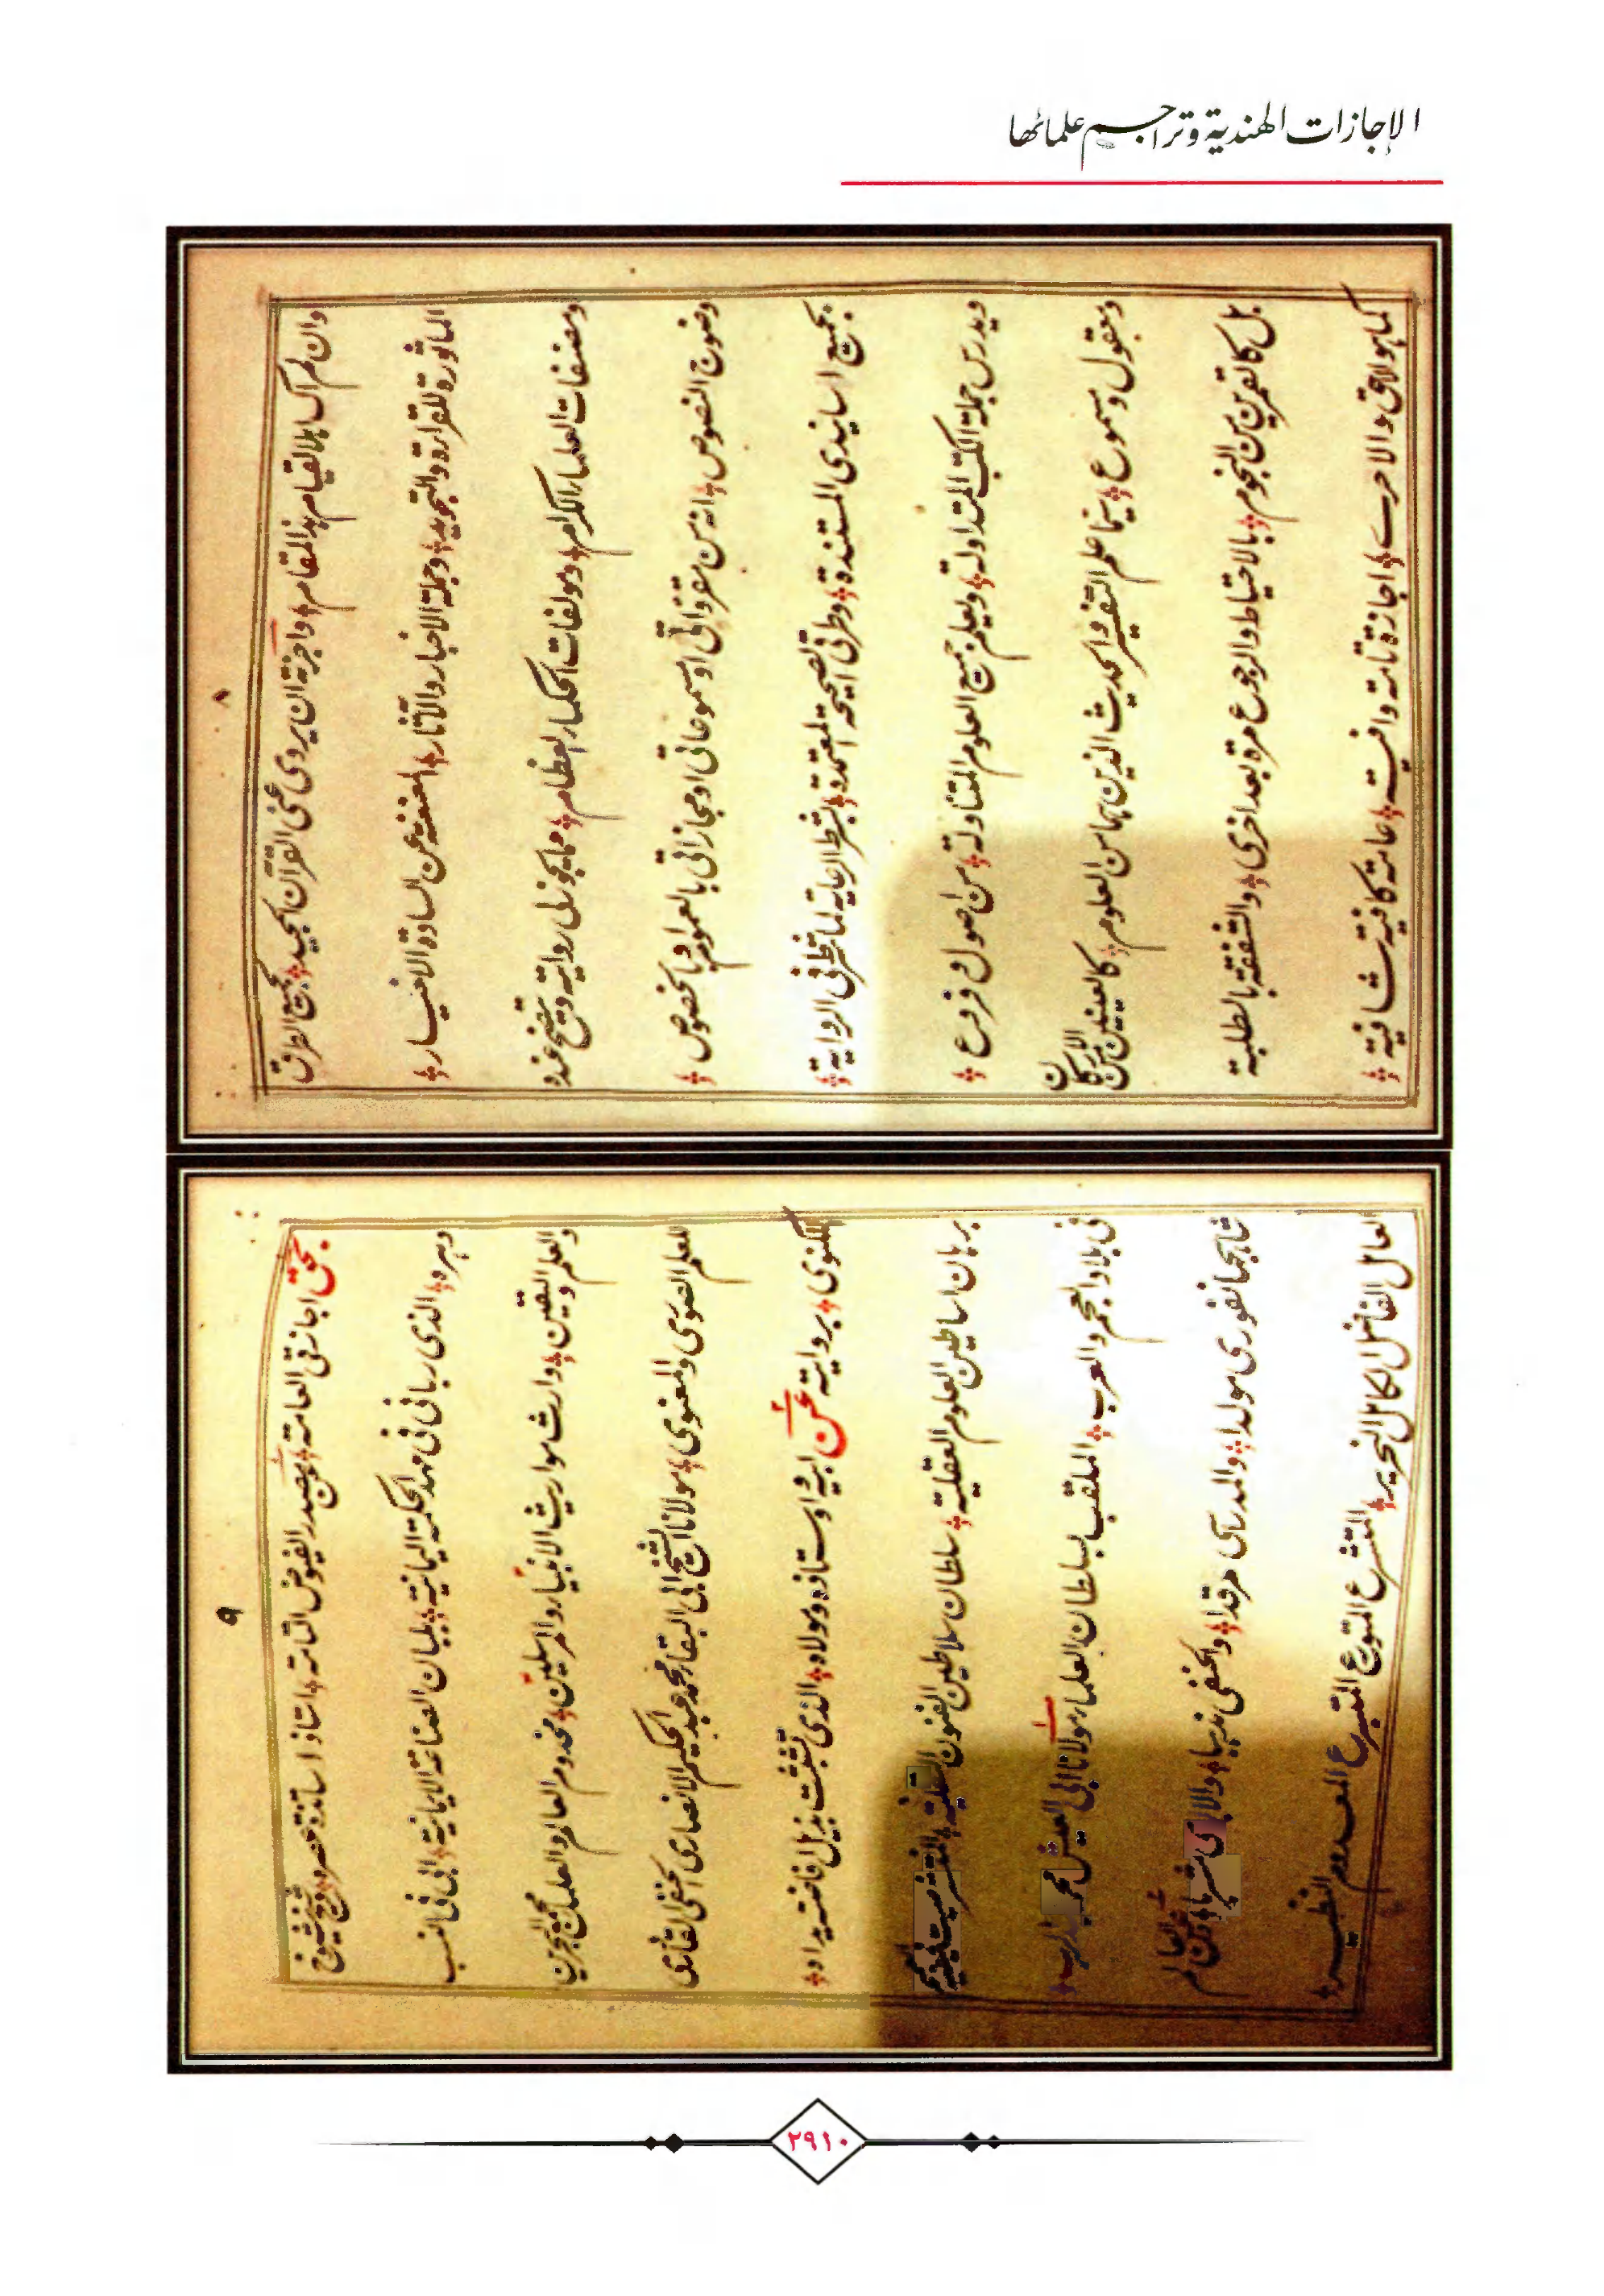 الإجازات الهندية وتراجم علمائها
٨
وان لم اك اهلا لقيام هذا المقام واجزته ان يروي عني القرآن المجيد بجميع الطرق
الماثورة للقراءة والتجويد وجملة الاخبار والآثار المعنعنة عن السادة الاخيار
ومصنفات العلماء الكرام ومولفات الحكماء العظام مما يجوز لي روايته وتصح عنده
وضوح النصوص انه من مقرواتي او مسموعاتي او مجازاتي بالعموم او بالخصوص
بجميع اسانيدي المستندة وطرقي الصحيحة المعتمدة بشرط الرعاية لما شرط في الرواية
ويدرس جملة الكتب المتداولة ويعلم جميع العلوم المتناولة من اصول و فروع
ومعقول ومسموع سيما علم التفسير والحديث الذين هما من العلوم كالعينين من الاركان
بل كالقمرين من النجوم بالاحتياط والرجوع مرة بعد اخرى والشفقة بالطلبة
كما هو الاحق والاحرى اجازة تامة وافية عامة كافية شافية
٩
بحق اجازتي العامة عن مصدر الفيوض التامة استاذ اساتذة عصره وشيخ شيوخ
دهره الذي رباني في مهد الحكمة اليمانية بلبان الصناعة الايمانية ابي في النسب
والعلم واليقين وارث مواريث الانبياء والمرسلين مخدوم العالم والعلماء مجمع البحرين
للعلم الصوري والمعنوي مولانا الشيخ ابي البقاء محمد عبد الحكيم الانصاري الحنفي القادري
اللكنوي بروايته عن ابيه واستاذه ومولاه الذي تشبثت بذيل افاضته يداه
برهان اساطين العلوم العقلية سلطان سلاطين الفنون النقلية المنتشر صيت فيضه
في بلاد العجم والعرب الملقب بسلطان العلماء مولانا ابي العيش محمد عبد الرب
شاهجهانفوري مولدا والمدراسي مرقدا والحنفي مذهبا والاكبري مشربا وعن العالم
العامل الفاضل الكامل النحرير المتشرع المتورع المتبرع المعدوم النظير
٢٩١٠